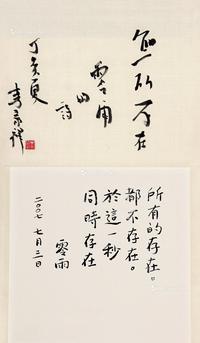 無所不在
零雨的詩
丁亥夏
所有的存在。
都不存在。
於這一秒
同時存在
零雨
二〇〇七 七月三日